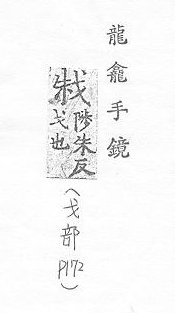 龍龕手鏡
陟朱反
戈也
(戈部 p172)